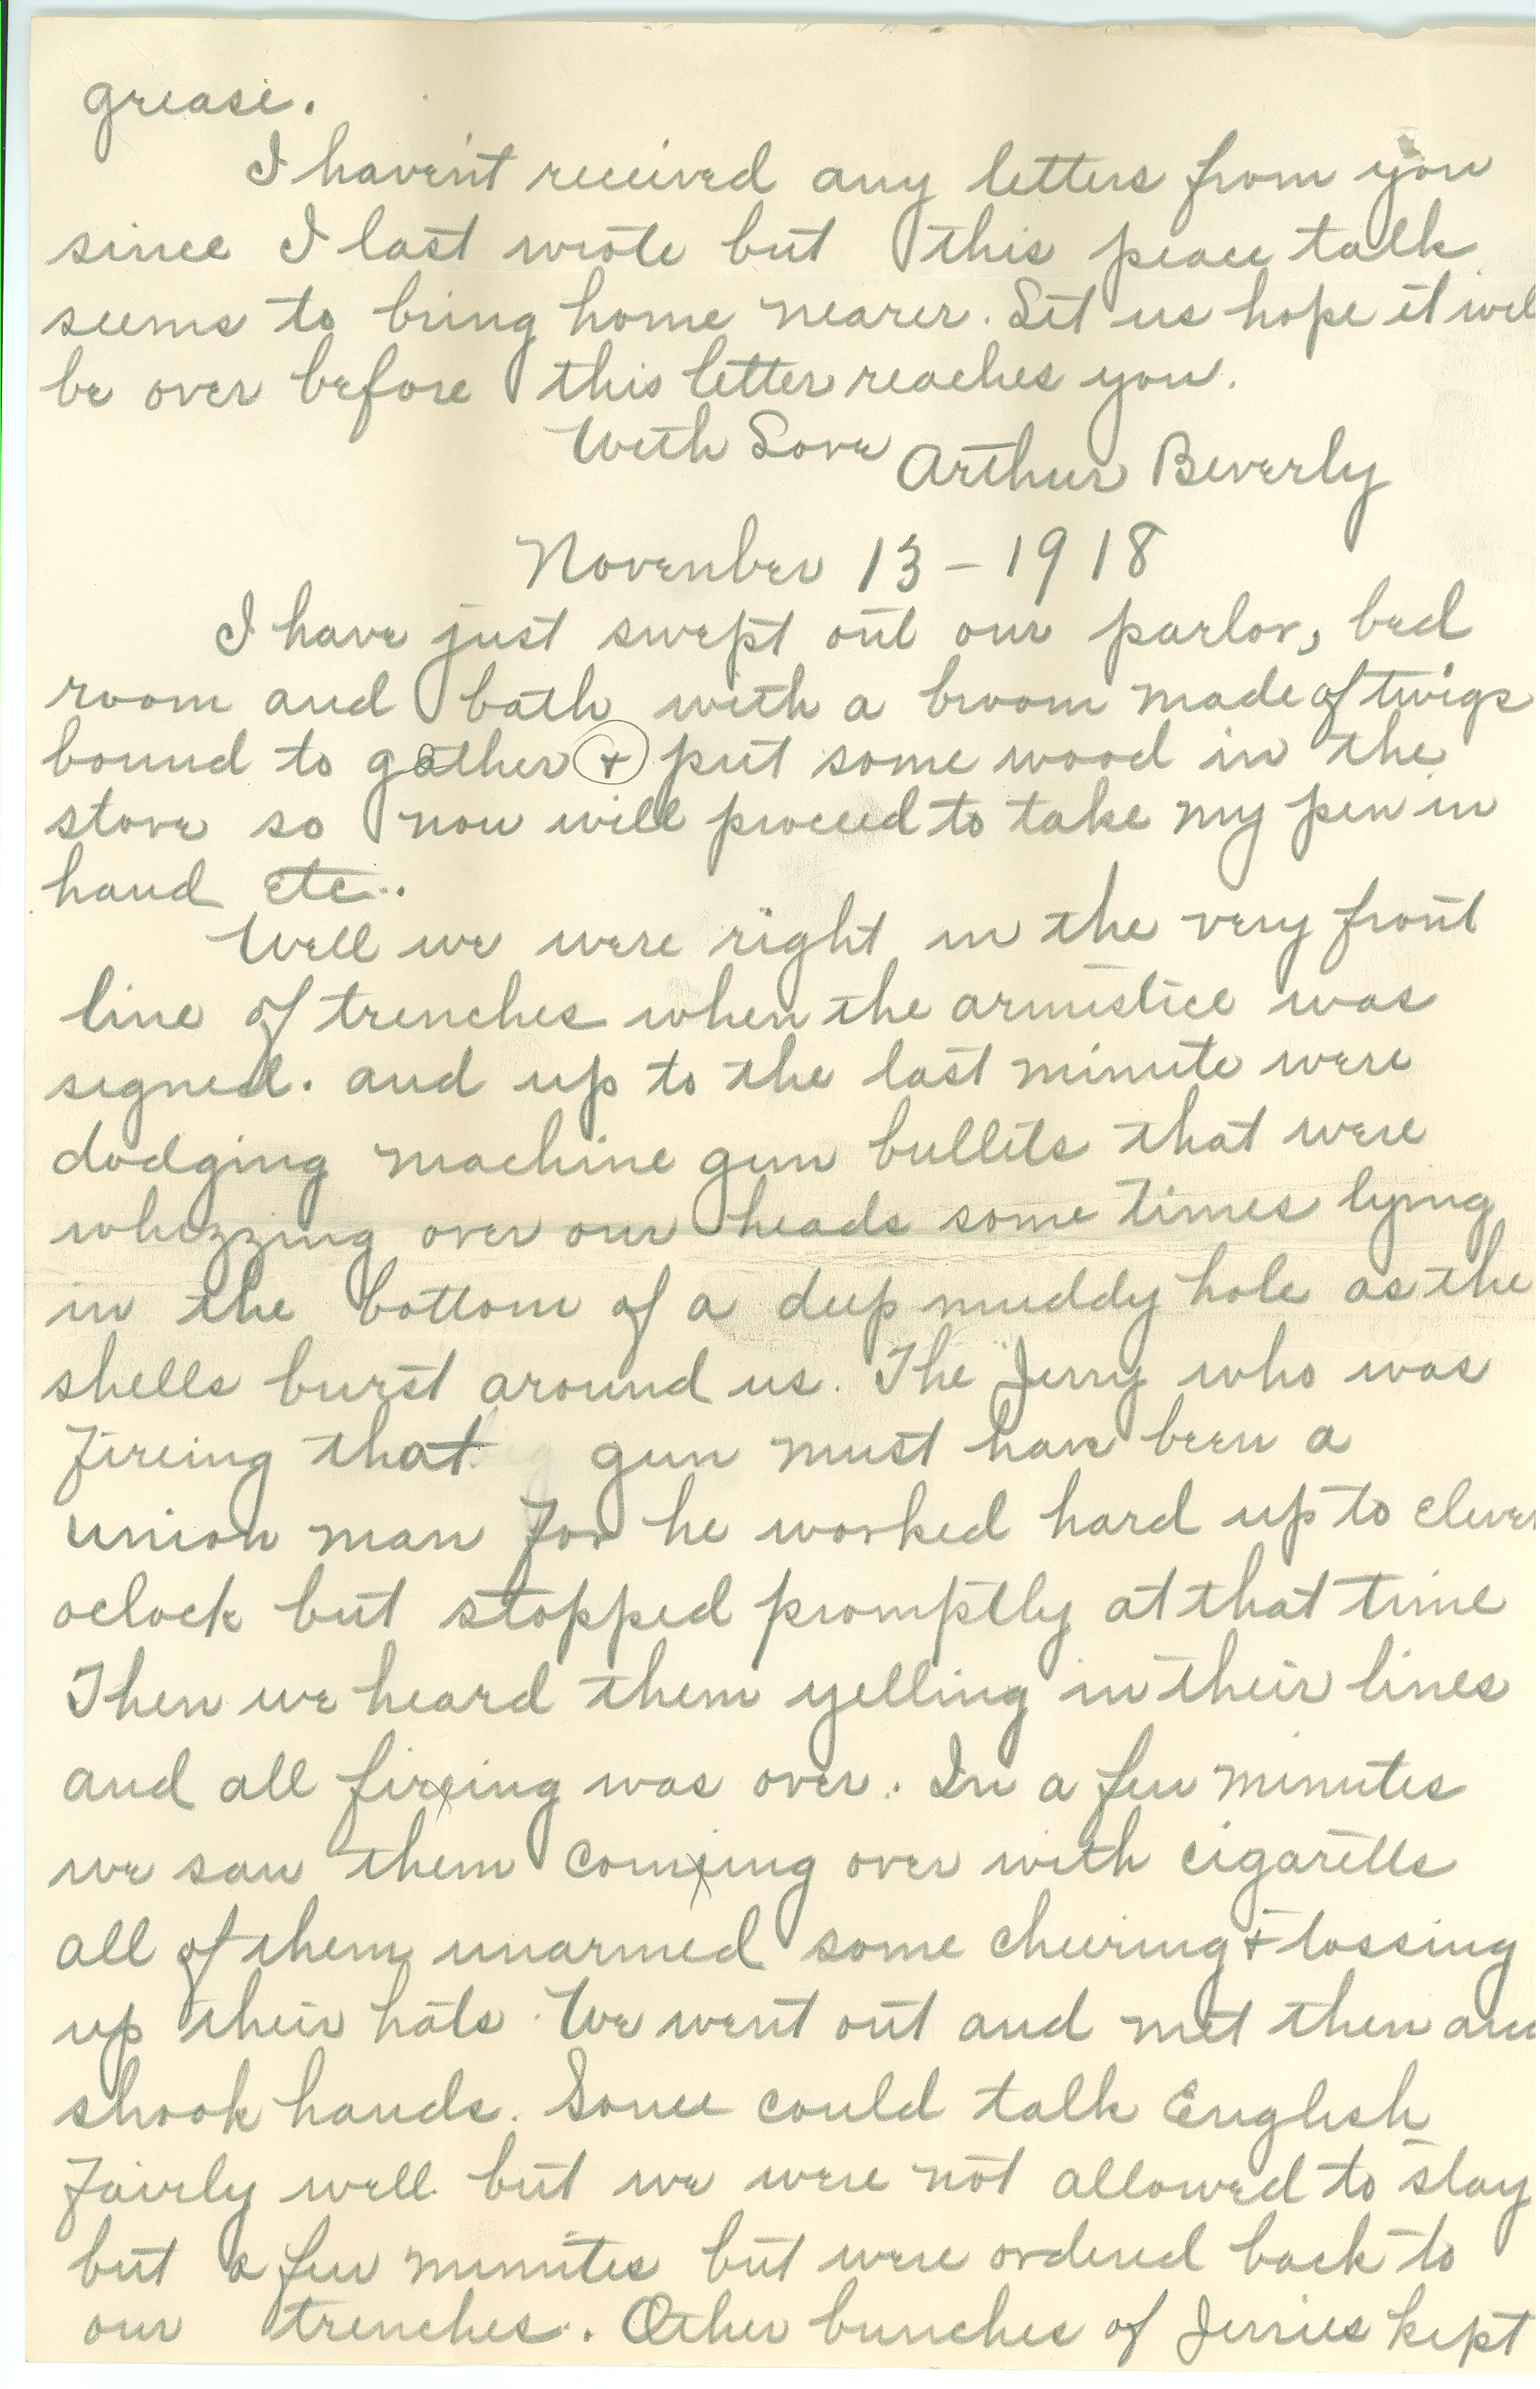 grease.
I haven't received any letters from you
since I last wrote but this peace talk
seems to bring home nearer. Let us hope it will
be over before this letter reaches you.
With Love Arthur Beverly
November 13 - 1918
I have just swept out our parlor, bed
room and bath with a broom made of twigs
bound to gather + put some wood in the
stove so now will proceed to take my pen in
hand etc..
Well we were right in the very front
line of trenches when the armistice was
signed. and up to the last minute were
dodging machine gun bullets that were
whizzing over our heads some times lying
in the bottom of a deep muddy hole as the
shells burst around us. The Jerry who was
fireing that gun must have been a
union man for he worked hard up to eleven
oclock but stopped promptly at that time
Then we heard them yelling in their lines
and all firing was over. In a few minutes
we saw them coming over with cigaretts
all of them unarmed some cheering + tossing
up their hats. We went out and met them and
shook hands. Some could talk English
fairly well but we were not allowed to stay
but a few minutes but were ordered back to
our trenches. Other bunches of Jerries kept